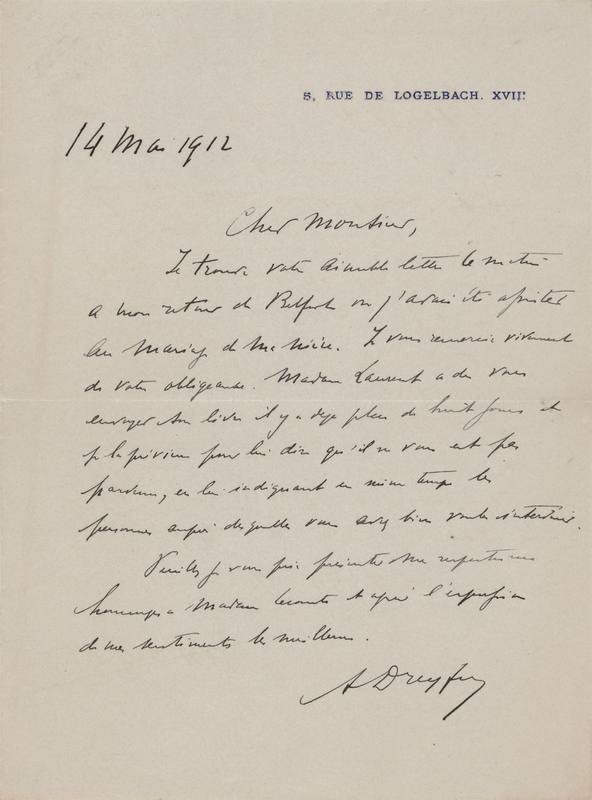 5, RUE DE LOGELBACH. XVIIe
14 Mai 1912
Cher Monsieur,
Je trouve votre aimable lettre ce matin
à mon retour de Belfort où j'avais été assister
au mariage de ma nièce. Je vous remercie vivement
de votre obligeance. Madame Laurent a du vous
envoyer son livre il y a deja plus de huit jours et
je la préviens pour lui dire qu'il ne vous est pas
parvenu, en lui indiquant en même temps les
personnes auprès desquelles vous avez bien voulu intervenir.
Veuillez je vous prie présenter mes respectueux
hommages a Madame Lecomte et agréer l'expression
de mes sentiments les meilleurs.
A Dreyfus